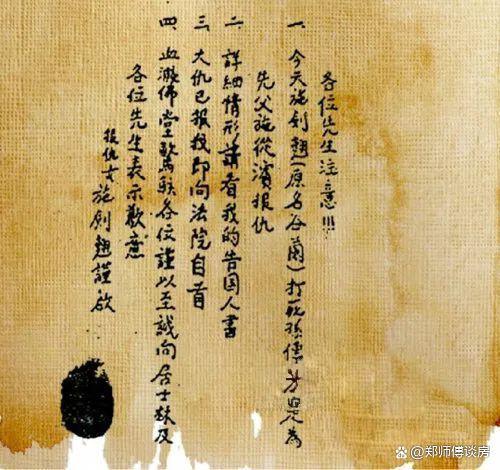 各位先生注意!!!
一 今天施劍翹(原名谷蘭)打死孫傳芳是為
先父施從濱報仇
二 詳細情形請看我的告国人書
三 大仇已報我即向法院自首
四 血濺佛堂驚駭各位謹以至誠向居士林及
各位先生表示歉意
報仇女施劍翹謹啟
郑师傅谈房